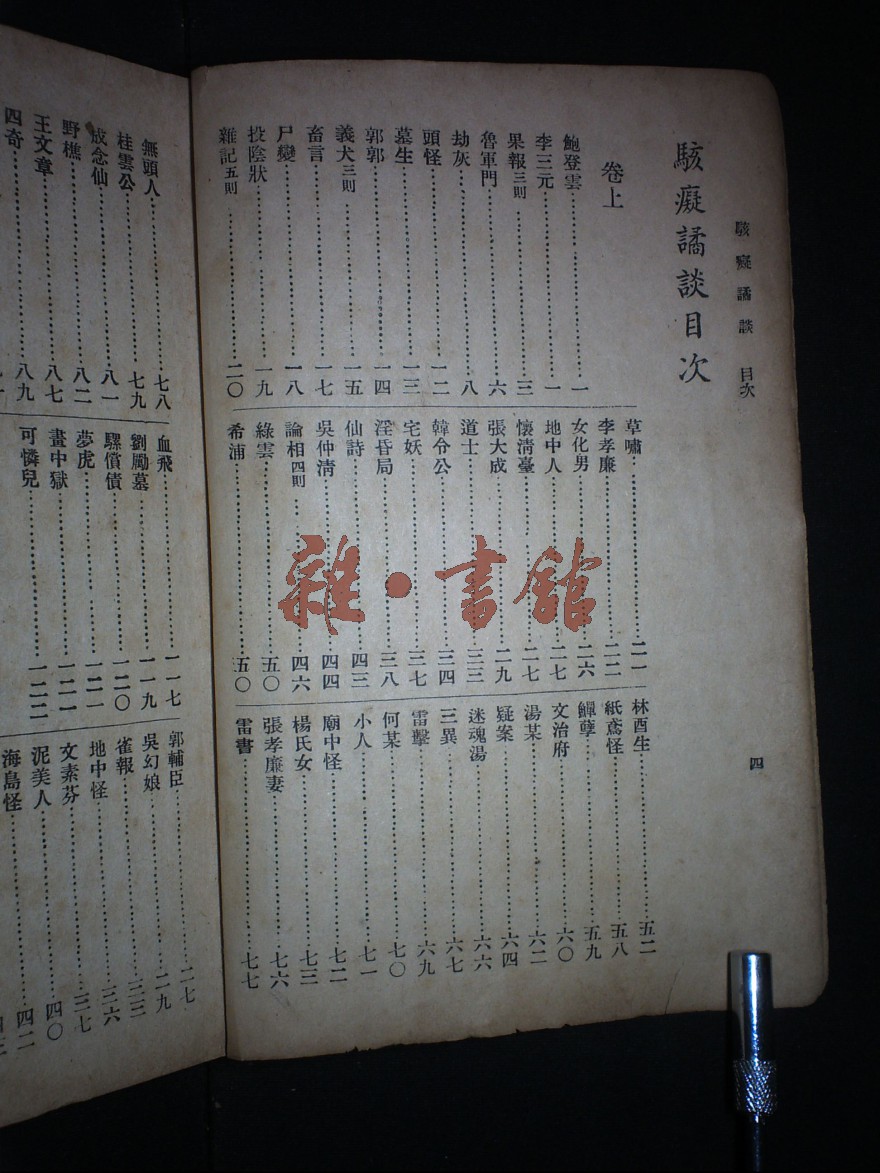 駭癡譎談 目次
四
駭癡譎談目次
卷上
鮑登雲 一
李三元 一
果報三則 三
魯軍門 六
劫灰 八
頭怪 一二
墓生 一三
郭郭 一四
義犬三則 一五
尸變 一八
畜言 一七
投陰狀 一九
雜記五則 二〇
草嘯 二一
李孝廉 二二
女化男 二六
地中人 二七
懷清臺 二七
張大成 二九
道士 三三
韓令公 三四
宅妖 三七
淫昏局 三八
仙詩 四三
吳仲清 四四
論相四則 四六
綠雲 五〇
希浦 五〇
林酉生 五二
紙鳶怪 五八
鱓孽 五九
文治府 六〇
湯某 六二
疑案 六四
迷魂湯 六六
三異 六七
雷擊 六九
何某 七〇
小人 七一
廟中怪 七二
楊氏女 七三
張孝廉妻 七六
雷書 七七
無頭人 七八
桂雲公 七九
成念仙 八一
野樵 八二
王文章 八七
四奇 八九
血飛 一一七
劉勵墓 一一九
騾償債 一二〇
夢虎 一二一
畫中獄 一二一
可憐兒 一二二
郭輔臣 二七
吳幻娘 二九
雀報 三三
地中怪 三六
文素芬 三七
泥美人 四〇
海島怪 四二
雜·書館